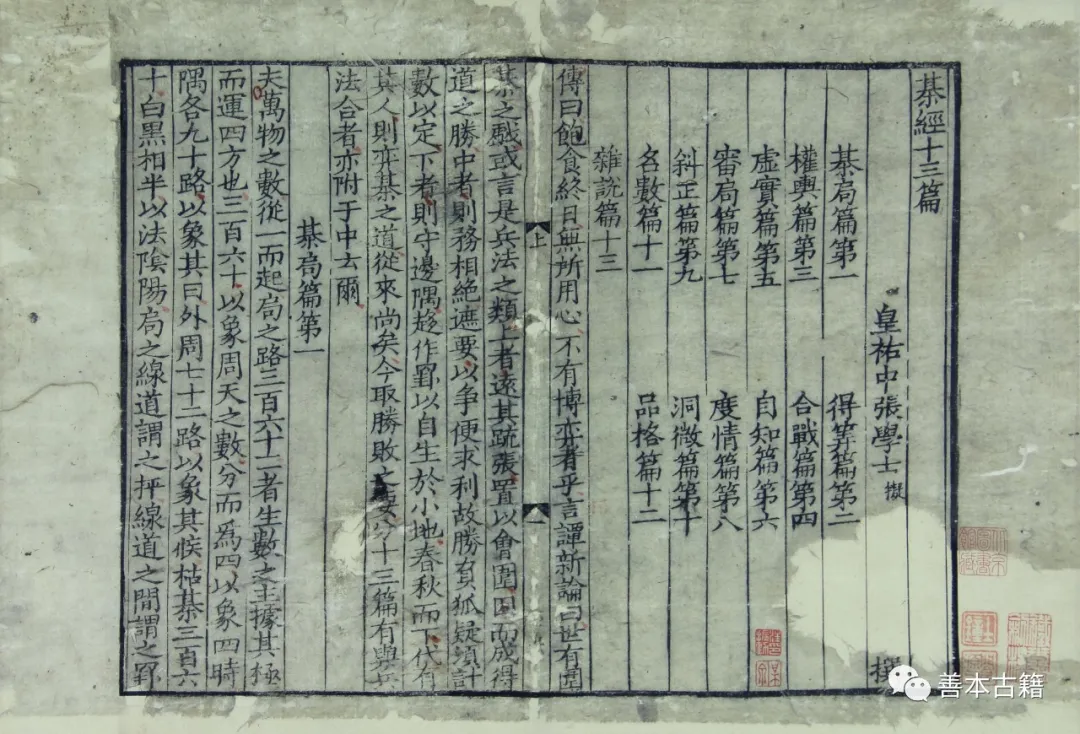 棊經十三篇
皇祐中張學士 撰
棊局篇第一 得筭篇第二
權輿篇第三 合戰篇第四
虛實篇第五 自知篇第六
審局篇第七 度情篇第八
斜正篇第九 洞微篇第十
名數篇十一 品格篇十二
雜說篇十三
傳曰飽食終日無所用心不有博弈者乎言譚新論曰世有圍
棊之戲或言是兵法之類上者遠其疏張置以會圍因而成得
道之勝中者則務相絕遮要以爭便求利故勝負狐疑須計
數以定下者則守邊隅趍作罫以自生於小地春秋而下代有
其人則弈棊之道從來尚矣今取勝敗之要分十三篇有與兵
法合者亦附于中云爾
棊局篇第一
夫萬物之數從一而起局之路三百六十一者生數之主據其極
而運四方也三百六十以象周天之數分而爲四以象四時
隅各九十路以象其日外周七十二路以象其候枯棊三百六
十白黑相半以法陰陽局之線道謂之枰線道之間謂之罫
上
撰
善本古籍